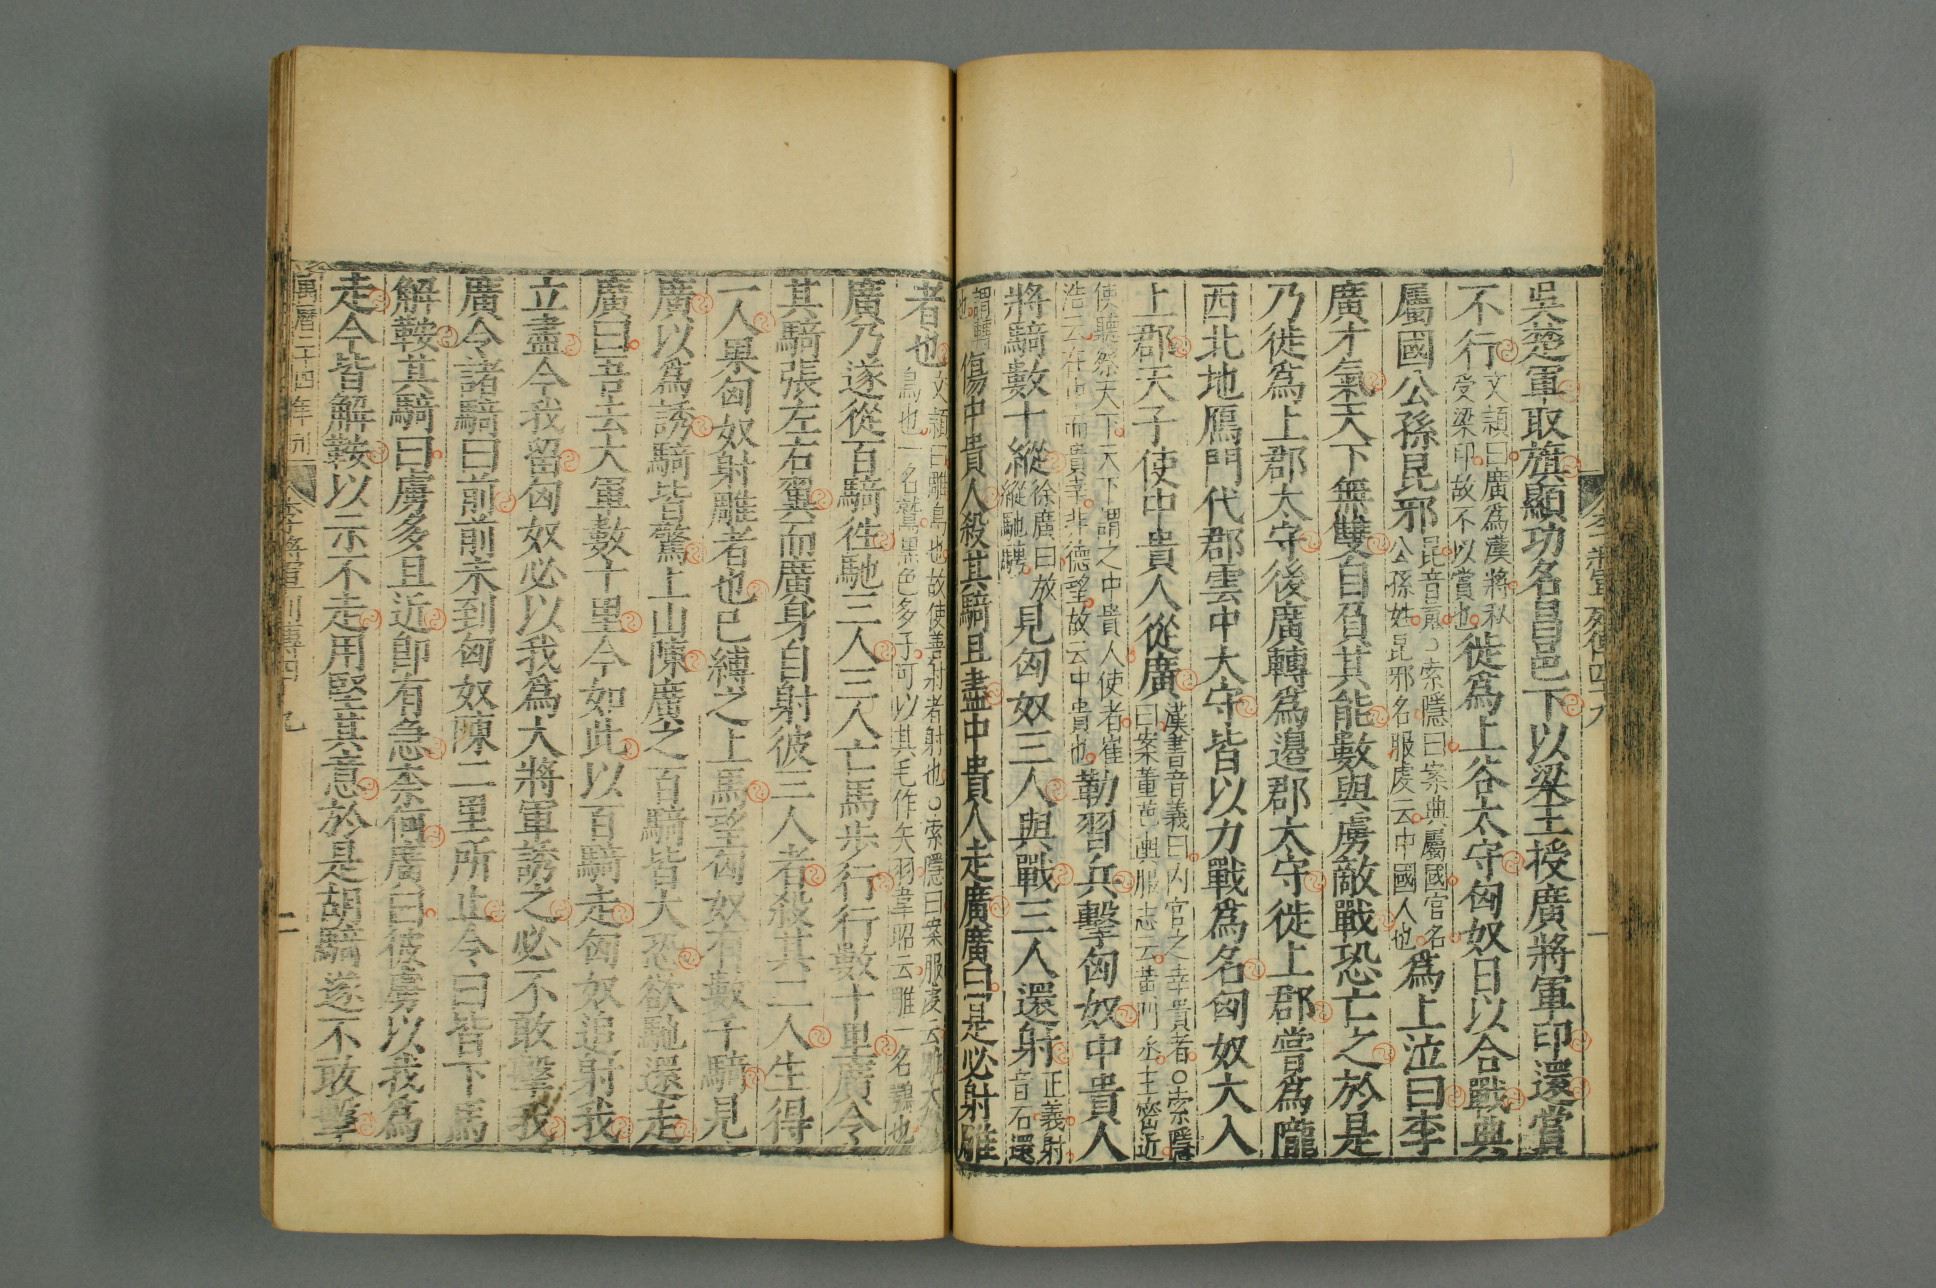 吳楚軍取旗顯功名昌邑下以梁王授廣將軍印還賞
不行文穎曰廣爲漢將私受梁印故不以賞也徙爲上谷太守匈奴日以合戰典
屬國公孫昆邪昆音䰟○索隱曰案典屬國官名公孫姓昆邪名服虔云中國人也爲上泣曰李
廣才氣天下無雙自負其能數與虜敵戰恐亡之於是
乃徙爲上郡太守後廣轉爲邊郡太守徙上郡嘗爲隴
西北地鴈門代郡雲中太守皆以力戰爲名匈奴大入
上郡天子使中貴人從廣漢書音義曰內官之幸貴者○索隱曰案董巴輿服志云黃門丞主密近
使聽察天下天下謂之中貴人使者崔浩云在中而貴幸非德望故云中貴也勒習兵擊匈奴中貴人
將騎數十縱徐廣曰放縱馳騁見匈奴三人與戰三人還射正義射音石還
謂轉也傷中貴人殺其騎且盡中貴人走廣廣曰是必射雕
者也文穎曰雕鳥也故使善射者射也○索隱曰案服虔云雕大鷙鳥也一名鷲黑色多子可以其毛作矢羽韋昭云雕一名鶚也
廣乃遂從百騎徃馳三人三人亡馬步行行數十里廣令
其騎張左右翼而廣身自射彼三人者殺其二人生得
一人果匈奴射雕者也已縛之上馬望匈奴有數千騎見
廣以爲誘騎皆驚上山陳廣之百騎皆大恐欲馳還走
廣曰吾去大軍數十里今如此以百騎走匈奴追射我
立盡今我留匈奴必以我爲大將軍誘之必不敢擊我
廣令諸騎曰前前未到匈奴陳二里所止令曰皆下馬
解鞍其騎曰虜多且近卽有急柰何廣曰彼虜以我爲
走今皆解鞍以示不走用堅其意於是胡騎遂不敢擊
萬曆二十四年刊 李將軍列傳四十九 二